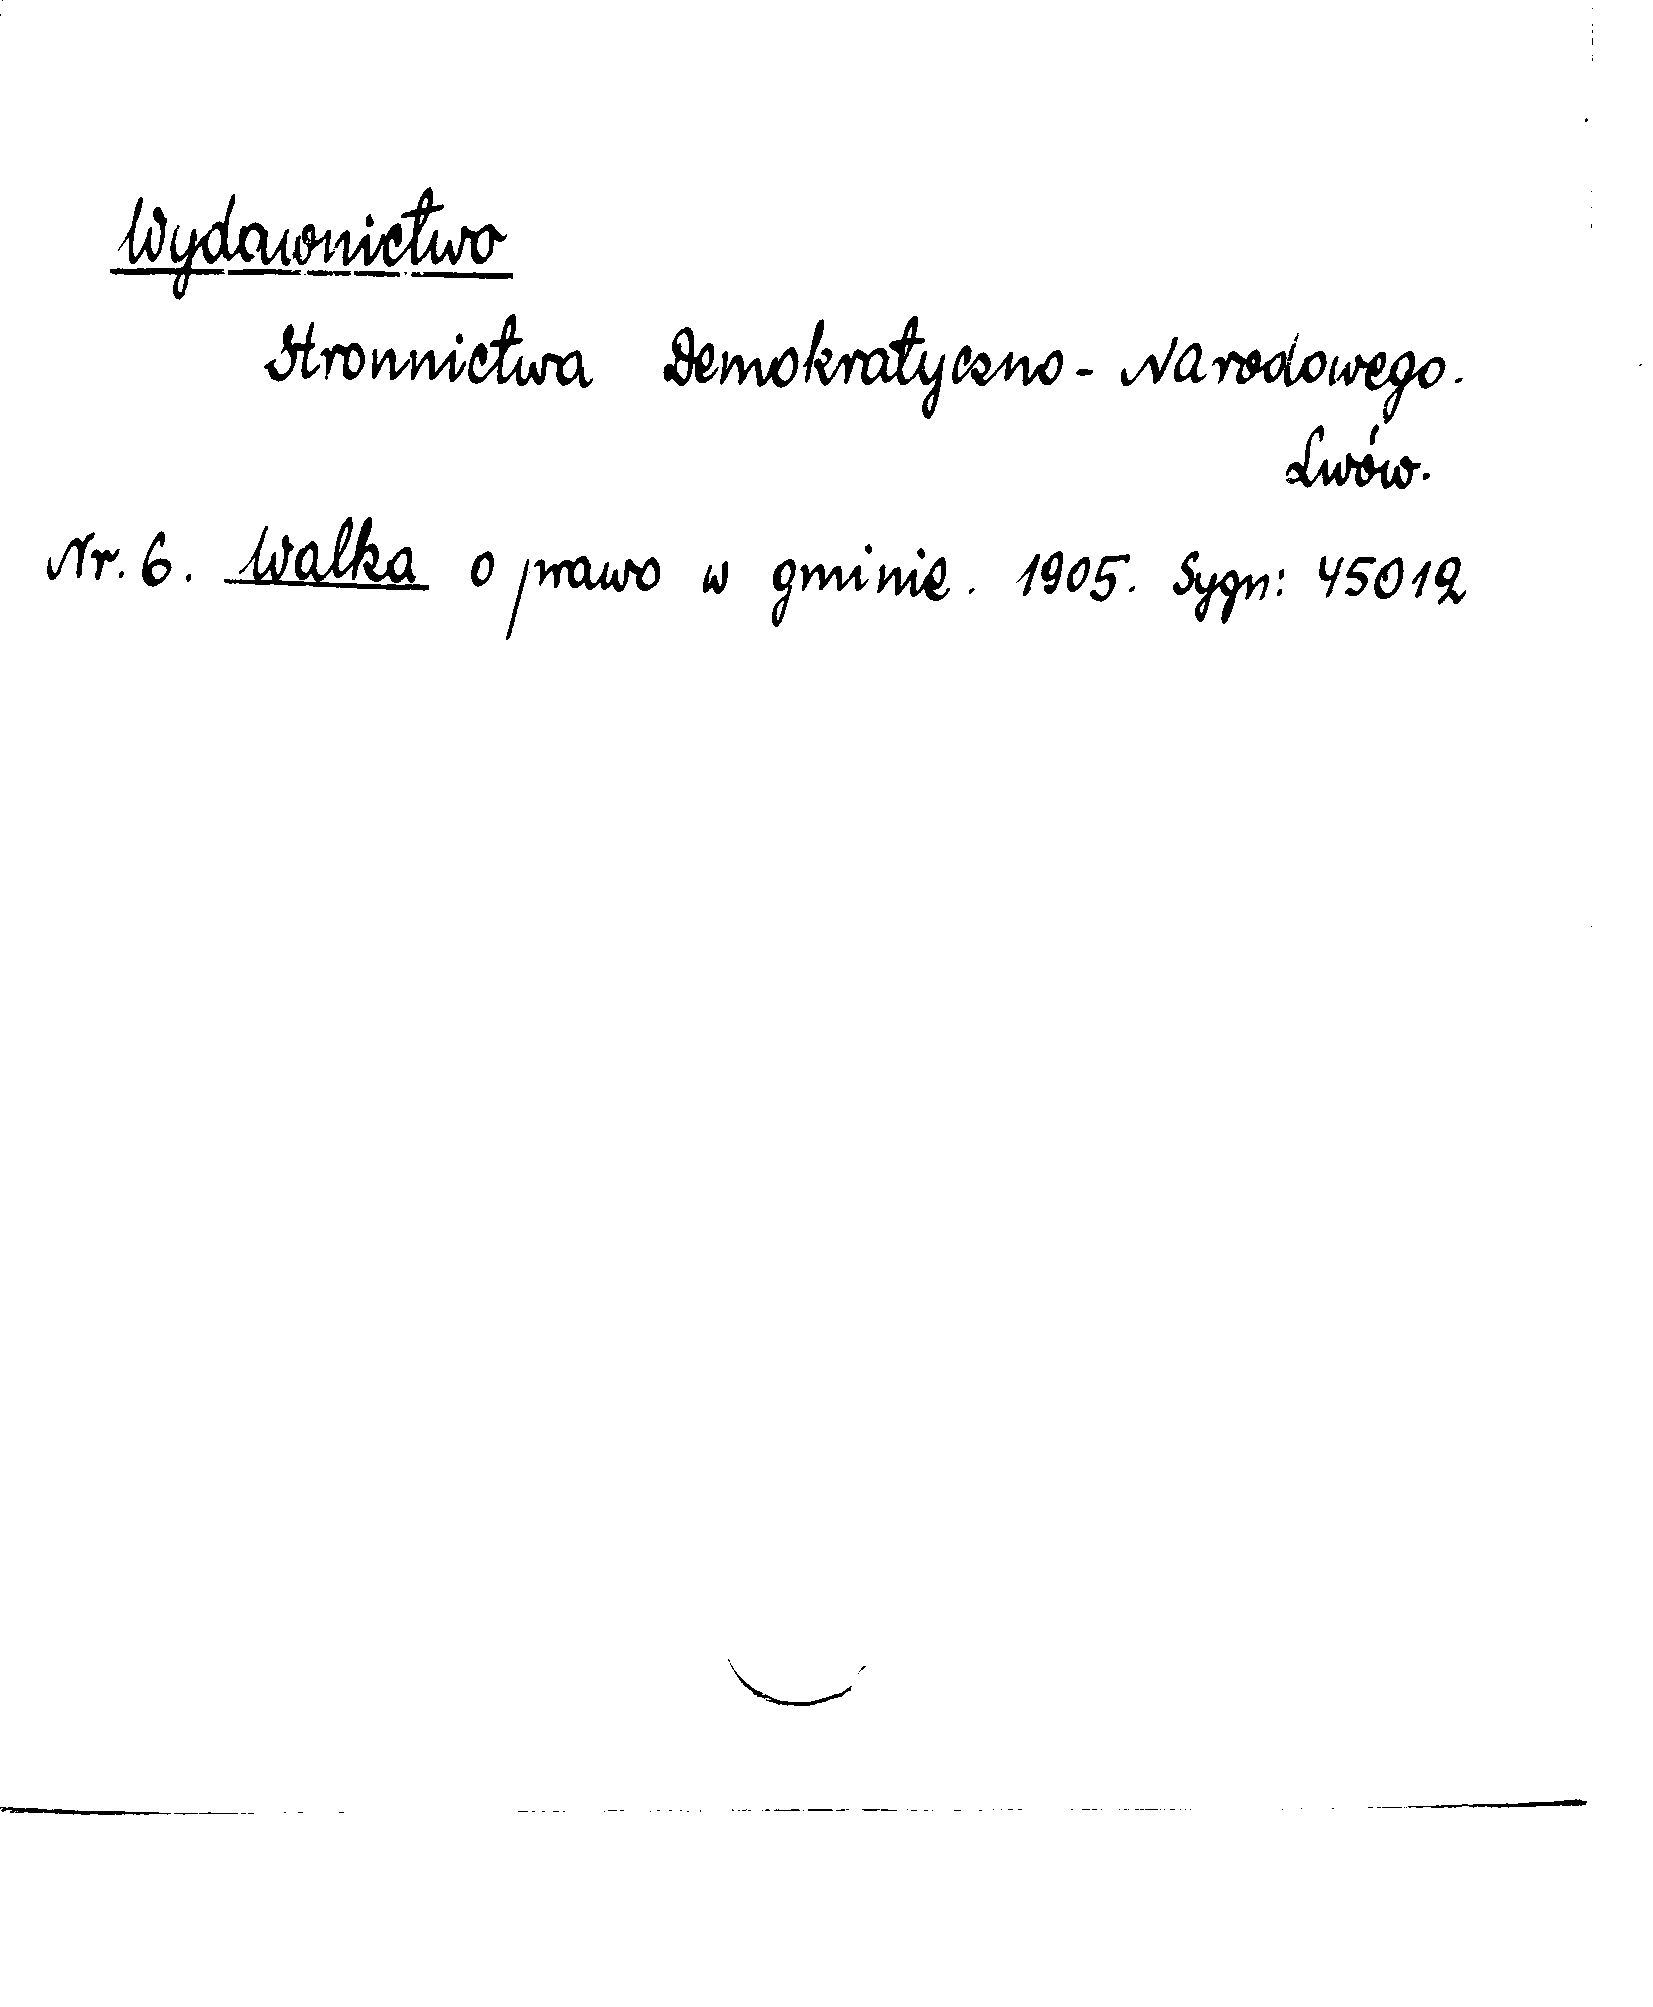 Wydawnictwo
Stronnictwa Demokratyczno-Narodowego.
Lwów.
Nr. 6. Walka o prawo w gminie. 1905. Sygn: 45012